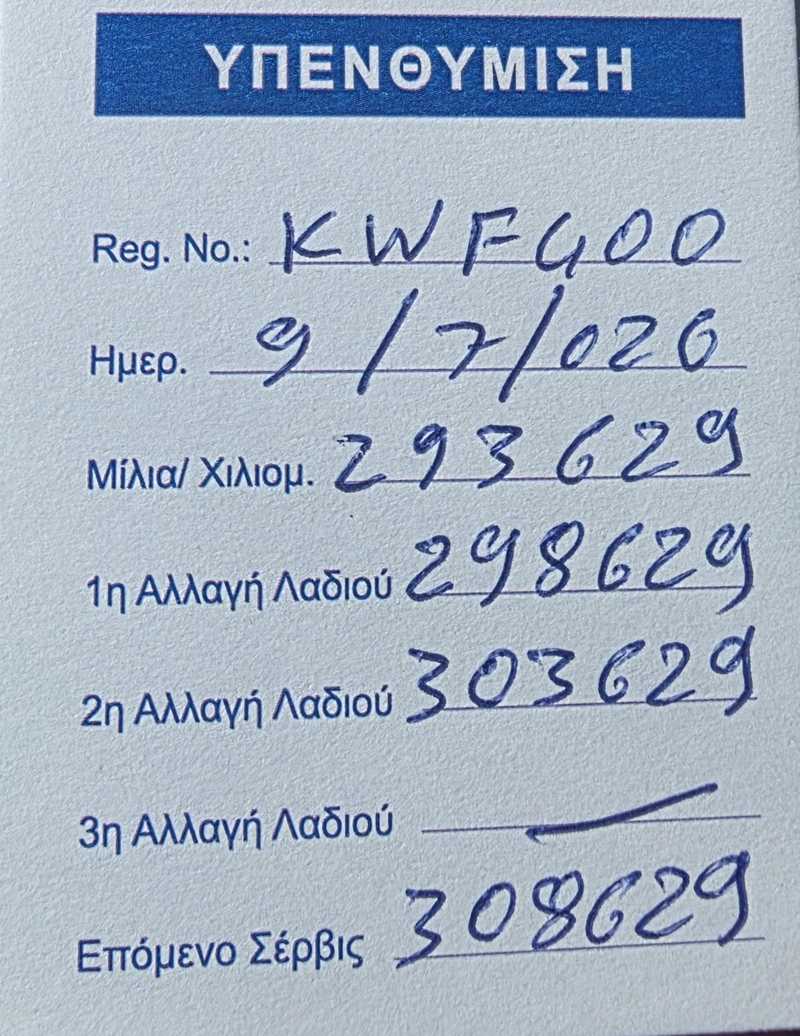 ΥΠΕΝΘΥΜΙΣΗ
Reg. No.: KWF400
Ημερ. 9/7/026
Μίλια/ Χιλιομ. 293629
1η Αλλαγή Λαδιού 298629
2η Αλλαγή Λαδιού 303629
3η Αλλαγή Λαδιού —
Επόμενο Σέρβις 308629